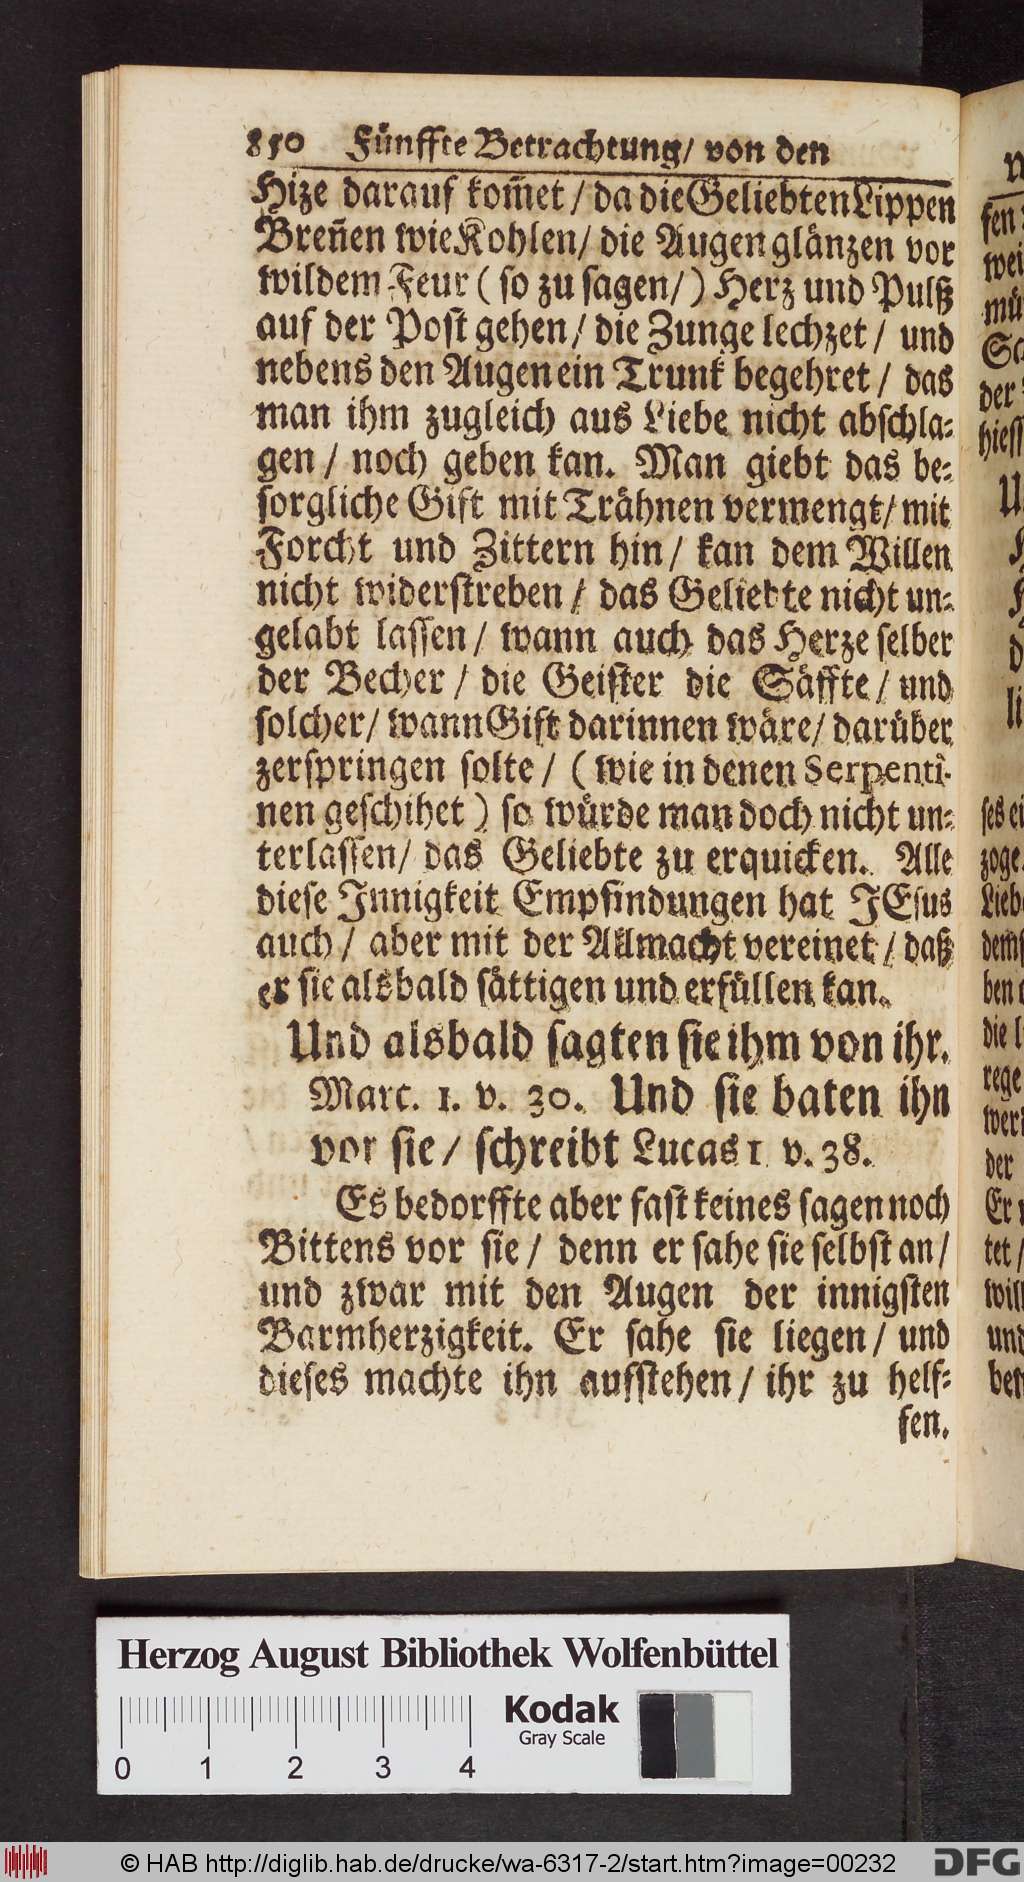 850 Fünffte Betrachtung/ von den
Hize darauf kom̃et / da die Geliebten Lippen
Breñen wie Kohlen/ die Augen glänzen vor
wildem Feur ( so zu sagen/ ) Herz und Pulß
auf der Post gehen/ die Zunge lechzet / und
nebens den Augen ein Trunk begehret / das
man ihm zugleich aus Liebe nicht abschla-
gen / noch geben kan. Man giebt das be-
sorgliche Gift mit Trähnen vermengt/ mit
Forcht und Zittern hin/ kan dem Willen
nicht widerstreben / das Geliebte nicht un-
gelabt lassen/ wann auch das Herze selber
der Becher / die Geister die Säffte/ und
solcher/ wann Gift darinnen wäre/ darüber
zerspringen solte/ ( wie in denen Serpenti-
nen geschihet ) so würde man doch nicht un-
terlassen/ das Geliebte zu erquicken. Alle
diese Innigkeit Empfindungen hat JEsus
auch / aber mit der Allmacht vereinet / daß
er sie alsbald sättigen und erfüllen kan.
Und alsbald sagten sie ihm von ihr.
Marc. 1. v. 30. Und sie baten ihn
vor sie/ schreibt Lucas 1 v. 38.
Es bedorffte aber fast keines sagen noch
Bittens vor sie/ denn er sahe sie selbst an/
und zwar mit den Augen der innigsten
Barmherzigkeit. Er sahe sie liegen / und
dieses machte ihn aufstehen / ihr zu helf-
fen.
Herzog August Bibliothek Wolfenbüttel
Kodak
Gray Scale
0 1 2 3 4
© HAB http://diglib.hab.de/drucke/wa-6317-2/start.htm?image=00232
DFG